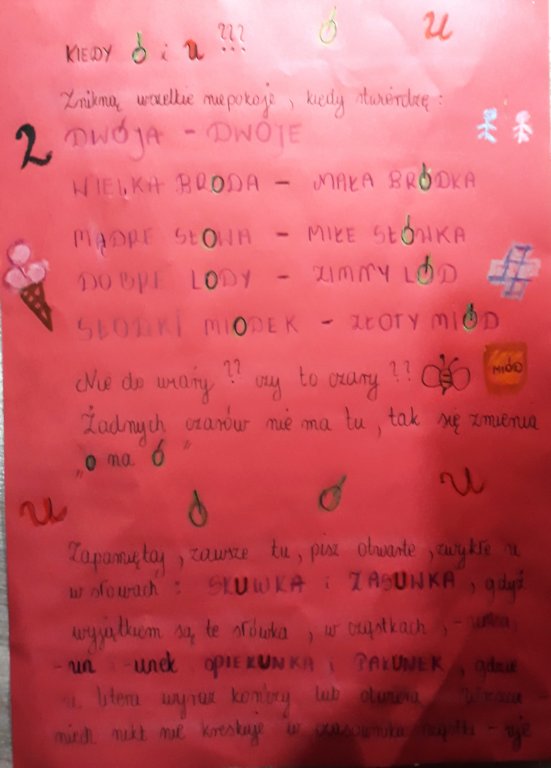 KIEDY ó i u ???
Znikną wszelkie niepokoje, kiedy stwierdzę:
2 DWÓJA - DWOJE
WIELKA BRODA - MAŁA BRÓDKA
MĄDRE SŁOWA - MIŁE SŁÓWKA
DOBRE LODY - ZIMNY LÓD
SŁODKI MIODEK - ZŁOTY MIÓD
MIÓD
Nie do wiary ?? czy to czary ??
Żadnych czarów nie ma tu, tak się zmienia
"o na ó"
Zapamiętaj, zawsze tu, pisz otwarte, zwykłe u
w słowach: SKUWKA i ZASUWKA, gdyż
wyjątkiem są te słówka, w cząstkach, -unka,
-un -unek OPIEKUNKA i PAKUNEK, gdzie
u litera wyraz kończy lub otwiera
nikt nie kreskuje w czasowniku cząstki - uje